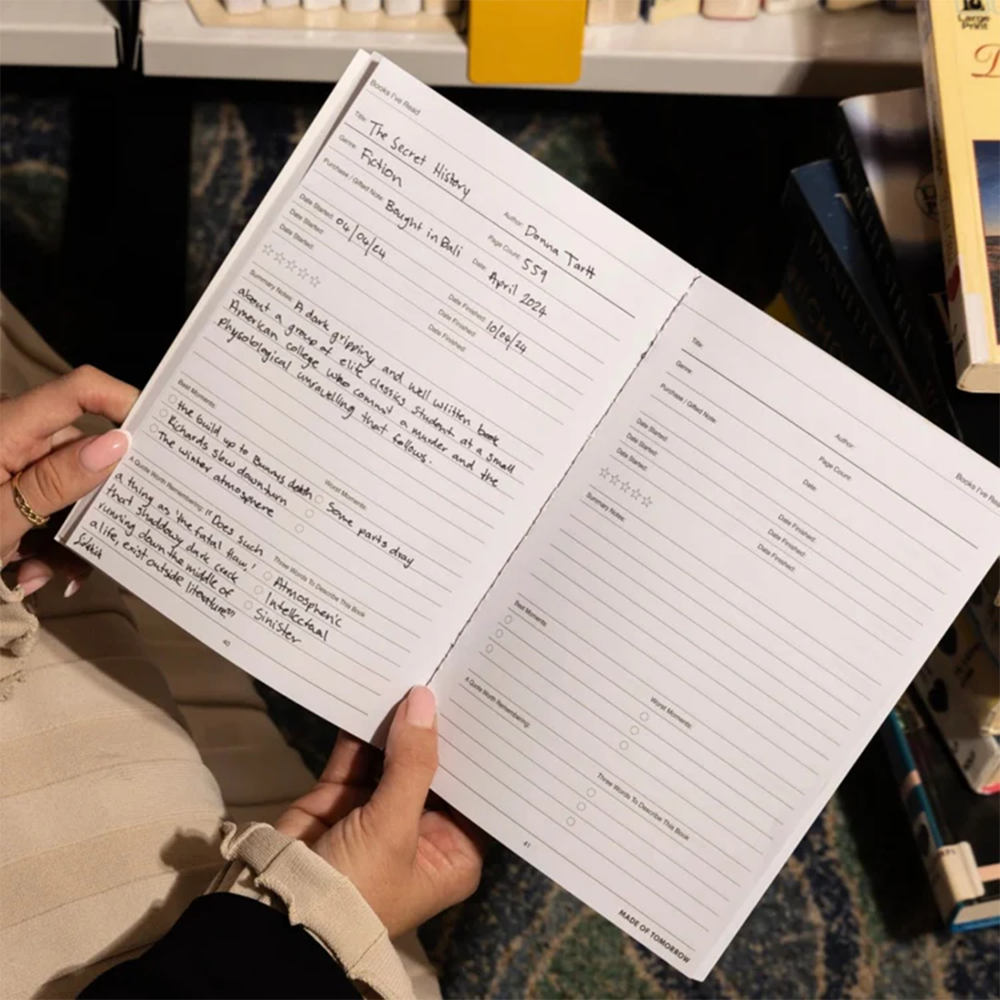 Books I've Read
Title: The Secret History
Author: Donna Tartt
Genre: Fiction
Page Count: 559
Purchase / Gifted Note: Bought in Bali
Date: April 2024
Date Started: 04/04/24
Date Finished: 10/04/24
Date Started:
Date Finished:
Date Started:
Date Finished:
Summary Notes: A dark gripping and well written book
about a group of elite classics student at a small
American college who commit a murder and the
Physological unravelling that follows.
Best Moments:
the build up to Bunnys death
Richards slow downturn
The winter atmosphere
Worst Moments:
Some parts dray
A Quote Worth Remembering: "Does such
a thing as 'the fatal flaw,'
that shadowy dark crack
running down the middle of
a life, exist outside literature?"
Three Words To Describe This Book
Atmospheric
Intellectual
Sinister
40
Books I've Re
Title:
Author:
Genre:
Page Count:
Purchase / Gifted Note:
Date:
Date Started:
Date Finished:
Date Started:
Date Finished:
Date Started:
Date Finished:
Summary Notes:
Best Moments:
Worst Moments:
A Quote Worth Remembering:
Three Words To Describe This Book
41
MADE OF TOMORROW
Large
Print